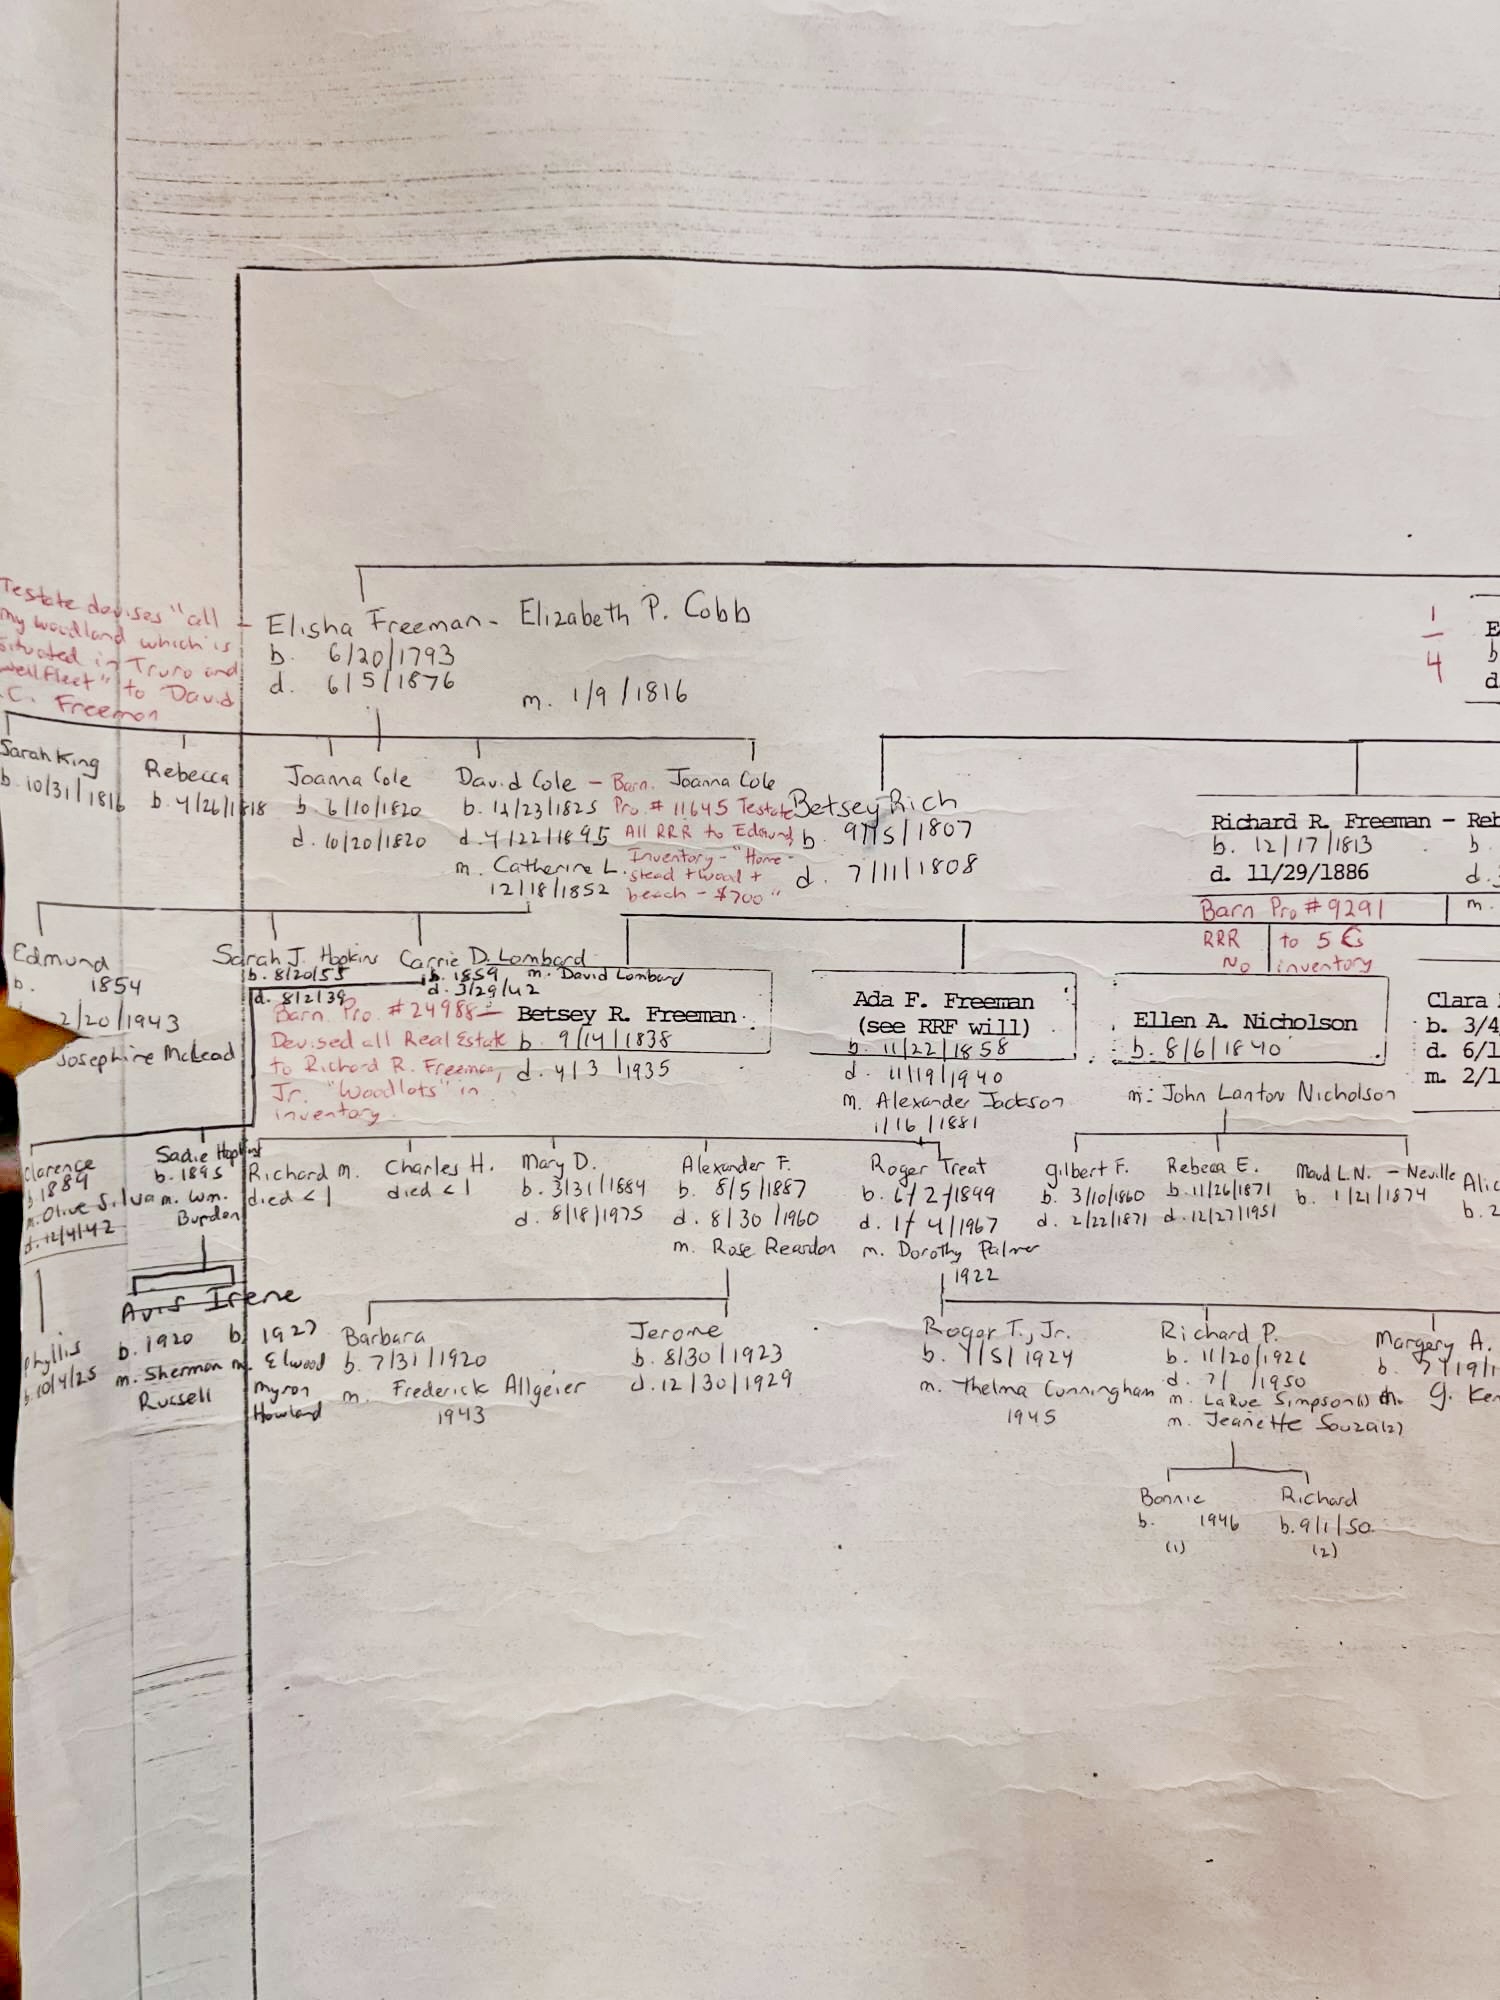 Testate devises "all
my woodland which is
situated in Truro and
Wellfleet" to David
C. Freeman
Elisha Freeman - Elizabeth P. Cobb
b. 6/20/1793
d. 6/5/1876
m. 1/9/1816
1
4
E
b
d
Sarah King
b. 10/31/1816
Rebecca
b. 4/26/1818
Joanna Cole
b. 6/10/1820
d. 10/20/1820
David Cole -
b. 12/23/1825
d. 4/22/1895
m. Catherine L.
12/18/1852
Barn.
Pro. # 11645 Testate
All RRR to Edmund
Inventory - "Home-
stead + wood +
beach - $700"
Joanna Cole
Betsey Rich
b. 9/15/1807
d. 7/11/1808
Richard R. Freeman - Reb
b. 12/17/1813
d. 11/29/1886
b.
d.
m.
Barn Pro #9291
RRR to 5
No inventory
Edmund
b. 1854
2/20/1943
Josephine McLead
Sarah J. Hopkins
b. 8/20/55
d. 8/2/39
Carrie D. Lombard
b. 1859, m. David Lombard
d. 3/29/42
Barn. Pro. #24988 -
Devised all Real Estate
to Richard R. Freeman,
Jr. "Woodlots" in
inventory.
Betsey R. Freeman
b. 9/14/1838
d. 4/3/1935
Ada F. Freeman
(see RRF will)
b. 11/22/1858
d. 11/19/1940
m. Alexander Jackson
1/16/1881
Ellen A. Nicholson
b. 8/6/1840
m: John Lanton Nicholson
Clara
b. 3/4
d. 6/1
m. 2/1
Clarence
b 1889
m. Olive Silva
d. 12/4/42
Sadie Hopkins
b. 1895
m. Wm.
Burdon
Richard M.
died < 1
Charles H.
died < 1
Mary D.
b. 3/31/1884
d. 8/18/1975
Alexander F.
b. 8/5/1887
d. 8/30/1960
m. Rose Reardon
Roger Treat
b. 6/2/1899
d. 1/4/1967
m. Dorothy Palmer
1922
Gilbert F.
b. 3/10/1860
d. 2/22/1871
Rebecca E.
b. 11/26/1871
d. 12/27/1951
Maud L.N. - Neville
b. 1/21/1874
Alic
b. 2
Phyllis
b. 10/4/25
Avis
b. 1920
m. Sherman
Russell
Irene
b 1927
m. Elwood
Myron
Howland
Barbara
b. 7/31/1920
m. Frederick Allgeier
1943
Jerome
b. 8/30/1923
d. 12/30/1929
Roger T., Jr.
b. 4/5/1924
m. Thelma Cunningham
1945
Richard P.
b. 11/20/1926
d. 7/ /1950
m. LaRue Simpson(1)
m. Jeanette Souza(2)
Margery A.
b. 7/19/1
G. Ken
Bonnie
b. 1946
(1)
Richard
b. 9/1/50
(2)